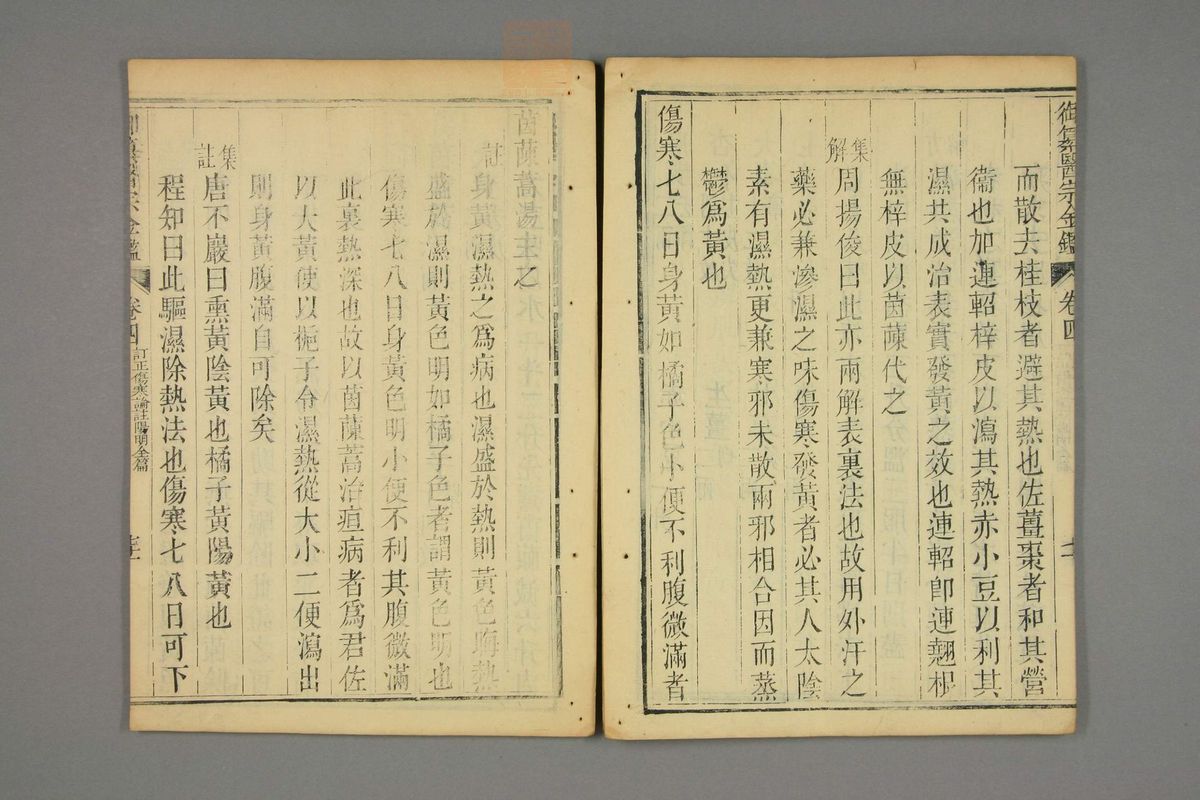 御纂醫宗金鑑 卷四
而散去桂枝者避其熱也佐薑棗者和其營
衞也加連軺梓皮以瀉其熱赤小豆以利其
濕共成治表實發黃之效也連軺卽連翹根
無梓皮以茵蔯代之
集解
周揚俊曰此亦兩解表裏法也故用外汗之
藥必兼滲濕之味傷寒發黃者必其人太陰
素有濕熱更兼寒邪未散兩邪相合因而蒸
鬱爲黃也
傷寒七八日身黃如橘子色小便不利腹微滿者
茵蔯蒿湯主之
註
身黃濕熱之爲病也濕盛於熱則黃色晦熱
盛於濕則黃色明如橘子色者謂黃色明也
傷寒七八日身黃色明小便不利其腹微滿
此裏熱深也故以茵蔯蒿治疸病者爲君佐
以大黃使以梔子令濕熱從大小二便瀉出
則身黃腹滿自可除矣
集註
唐不巖曰熏黃陰黃也橘子黃陽黃也
程知曰此驅濕除熱法也傷寒七八日可下
御纂醫宗金鑑 卷四 訂正傷寒論註陽明全篇